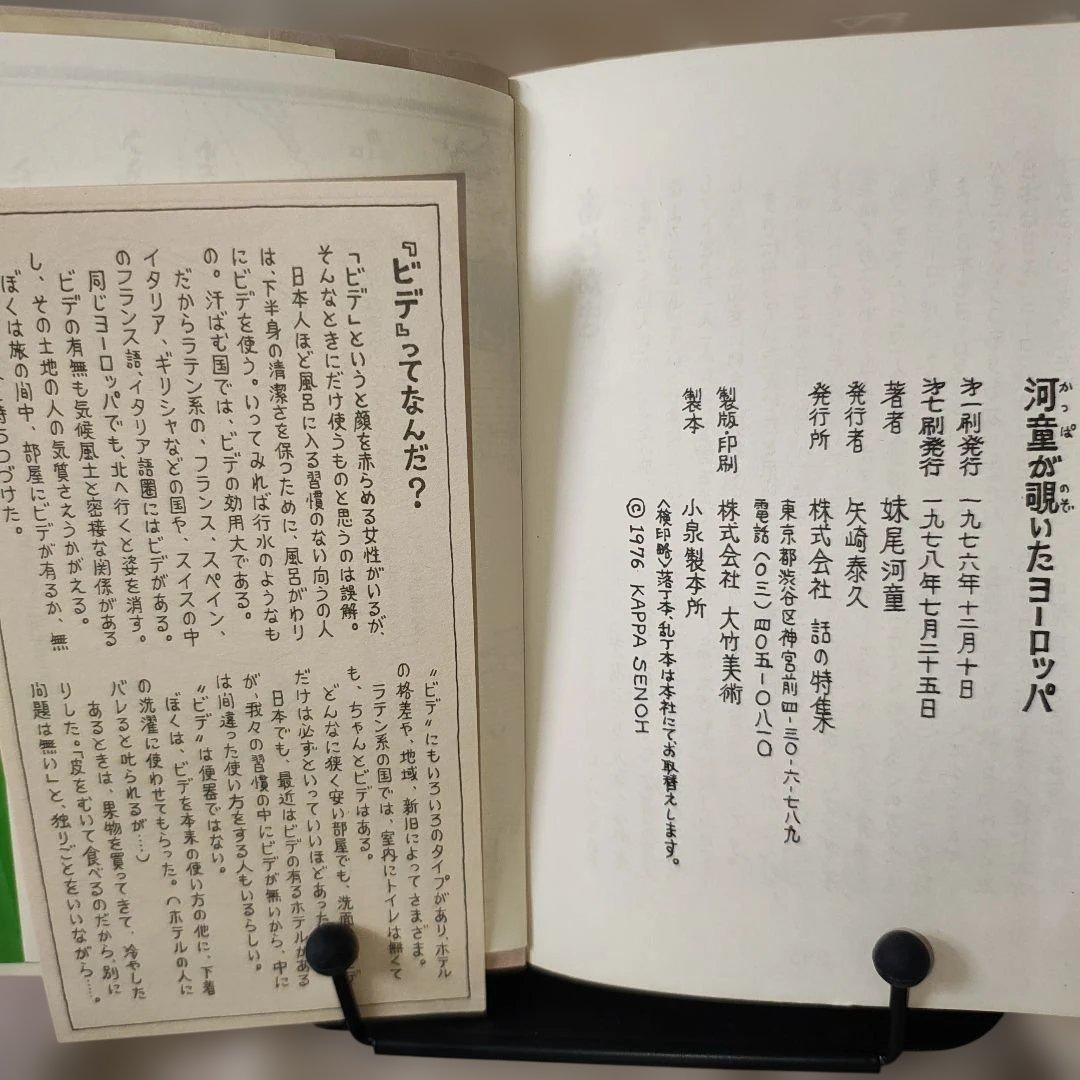 河童が覗いたヨーロッパ
かっぱ
のぞ
才一刷発行 一九七六年十二月十日
才七刷発行 一九七八年七月二十五日
著者 妹尾河童
発行者 矢崎泰久
発行所 株式会社 話の特集
東京都渋谷区神宮前四-三〇-六-七八九
電話(〇三)四〇五-〇八一〇
製版・印刷 株式会社 大竹美術
製本 小泉製本所
〈検印略〉落丁本、乱丁本は本社にてお取替えします。
© 1976 KAPPA SENOH
『ビデ』ってなんだ?
「ビデ」というと顔を赤らめる女性がいるが、
そんなときにだけ使うものと思うのは誤解。
日本人ほど風呂に入る習慣のない向うの人
は、下半身の清潔さを保つために、風呂がわり
にビデを使う。いってみれば行水のようなも
の。汗ばむ国では、ビデの効用大である。
だからラテン系の、フランス、スペイン、
イタリア、ギリシャなどの国や、スイスの中
のフランス語、イタリア語圏にはビデがある。
同じヨーロッパでも、北へ行くと姿を消す。
ビデの有無も気候風土と密接な関係がある
し、その土地の人の気質さえうかがえる。
ぼくは旅の間中、部屋にビデが有るか、無
持ちつづけた。
〝ビデ〟にもいろいろのタイプがあり、ホテル
の格差や、地域、新旧によってさまざま。
ラテン系の国では、室内にトイレは無くて
も、ちゃんとビデはある。
どんなに狭く安い部屋でも、洗面
だけは必ずといっていいほどあった
日本でも、最近はビデの有るホテルがある
が、我々の習慣の中にビデが無いから、中に
は間違った使い方をする人もいるらしい。
〝ビデ〟は便器ではない。
ぼくは、ビデを本来の使い方の他に、下着
の洗濯に使わせてもらった。(ホテルの人に
バレると叱られるが…)
あるときは、果物を買ってきて、冷やした
りした。「皮をむいて食べるのだから、別に
問題は無い」と、独りごとをいいながら……。